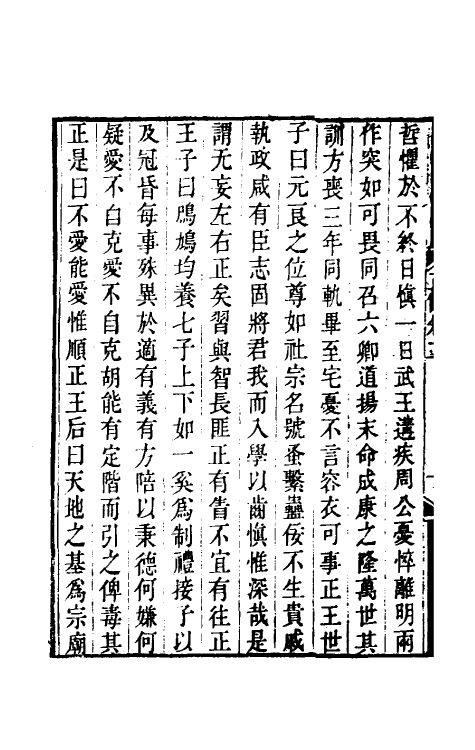 哲懼於不終日愼一日武王遘疾周公憂悴離明兩
作突如可畏同召六卿道揚末命成康之隆萬世其
訓方喪三年同軌畢至宅憂不言容衣可事正王世
子曰元良之位尊如社宗名號蚤繫蠱佞不生貴戚
執政咸有臣志固將君我而入學以齒愼惟深哉是
謂无妄左右正矣習與智長匪正有眚不宜有往正
王子曰鳲鳩均養七子上下如一奚爲制禮接子以
及冠昏每事殊異於適有義有方陪以秉德何嫌何
疑愛不自克愛不自克胡能有定階而引之俾毒其
正是曰不愛能愛惟順正王后曰天地之基爲宗廟